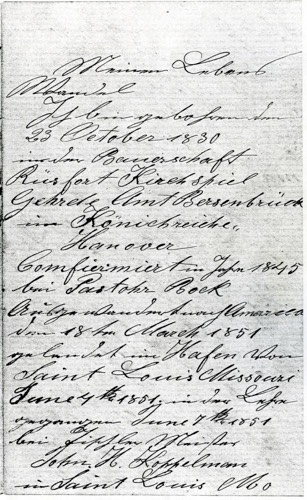 Meinen Lebens
Wandel
Ich bin gebohren den
23 October 1830
in der Bauerschaft
Rüsfort Kirchspiel
Gehrde Amt Bersenbrück
im Königreiche
Hanover
Comfiermiert in Jahr 1845
bei Pastohr Bock
Ausgewandert nach America
den 18ten March 1851
gelandet im Hafen von
Saint Louis Missouri
June 4th 1851, in der Lehre
gegangen June 7th 1851
bei Tischler Meister
John H. Koppelman
in Saint Louis Mo